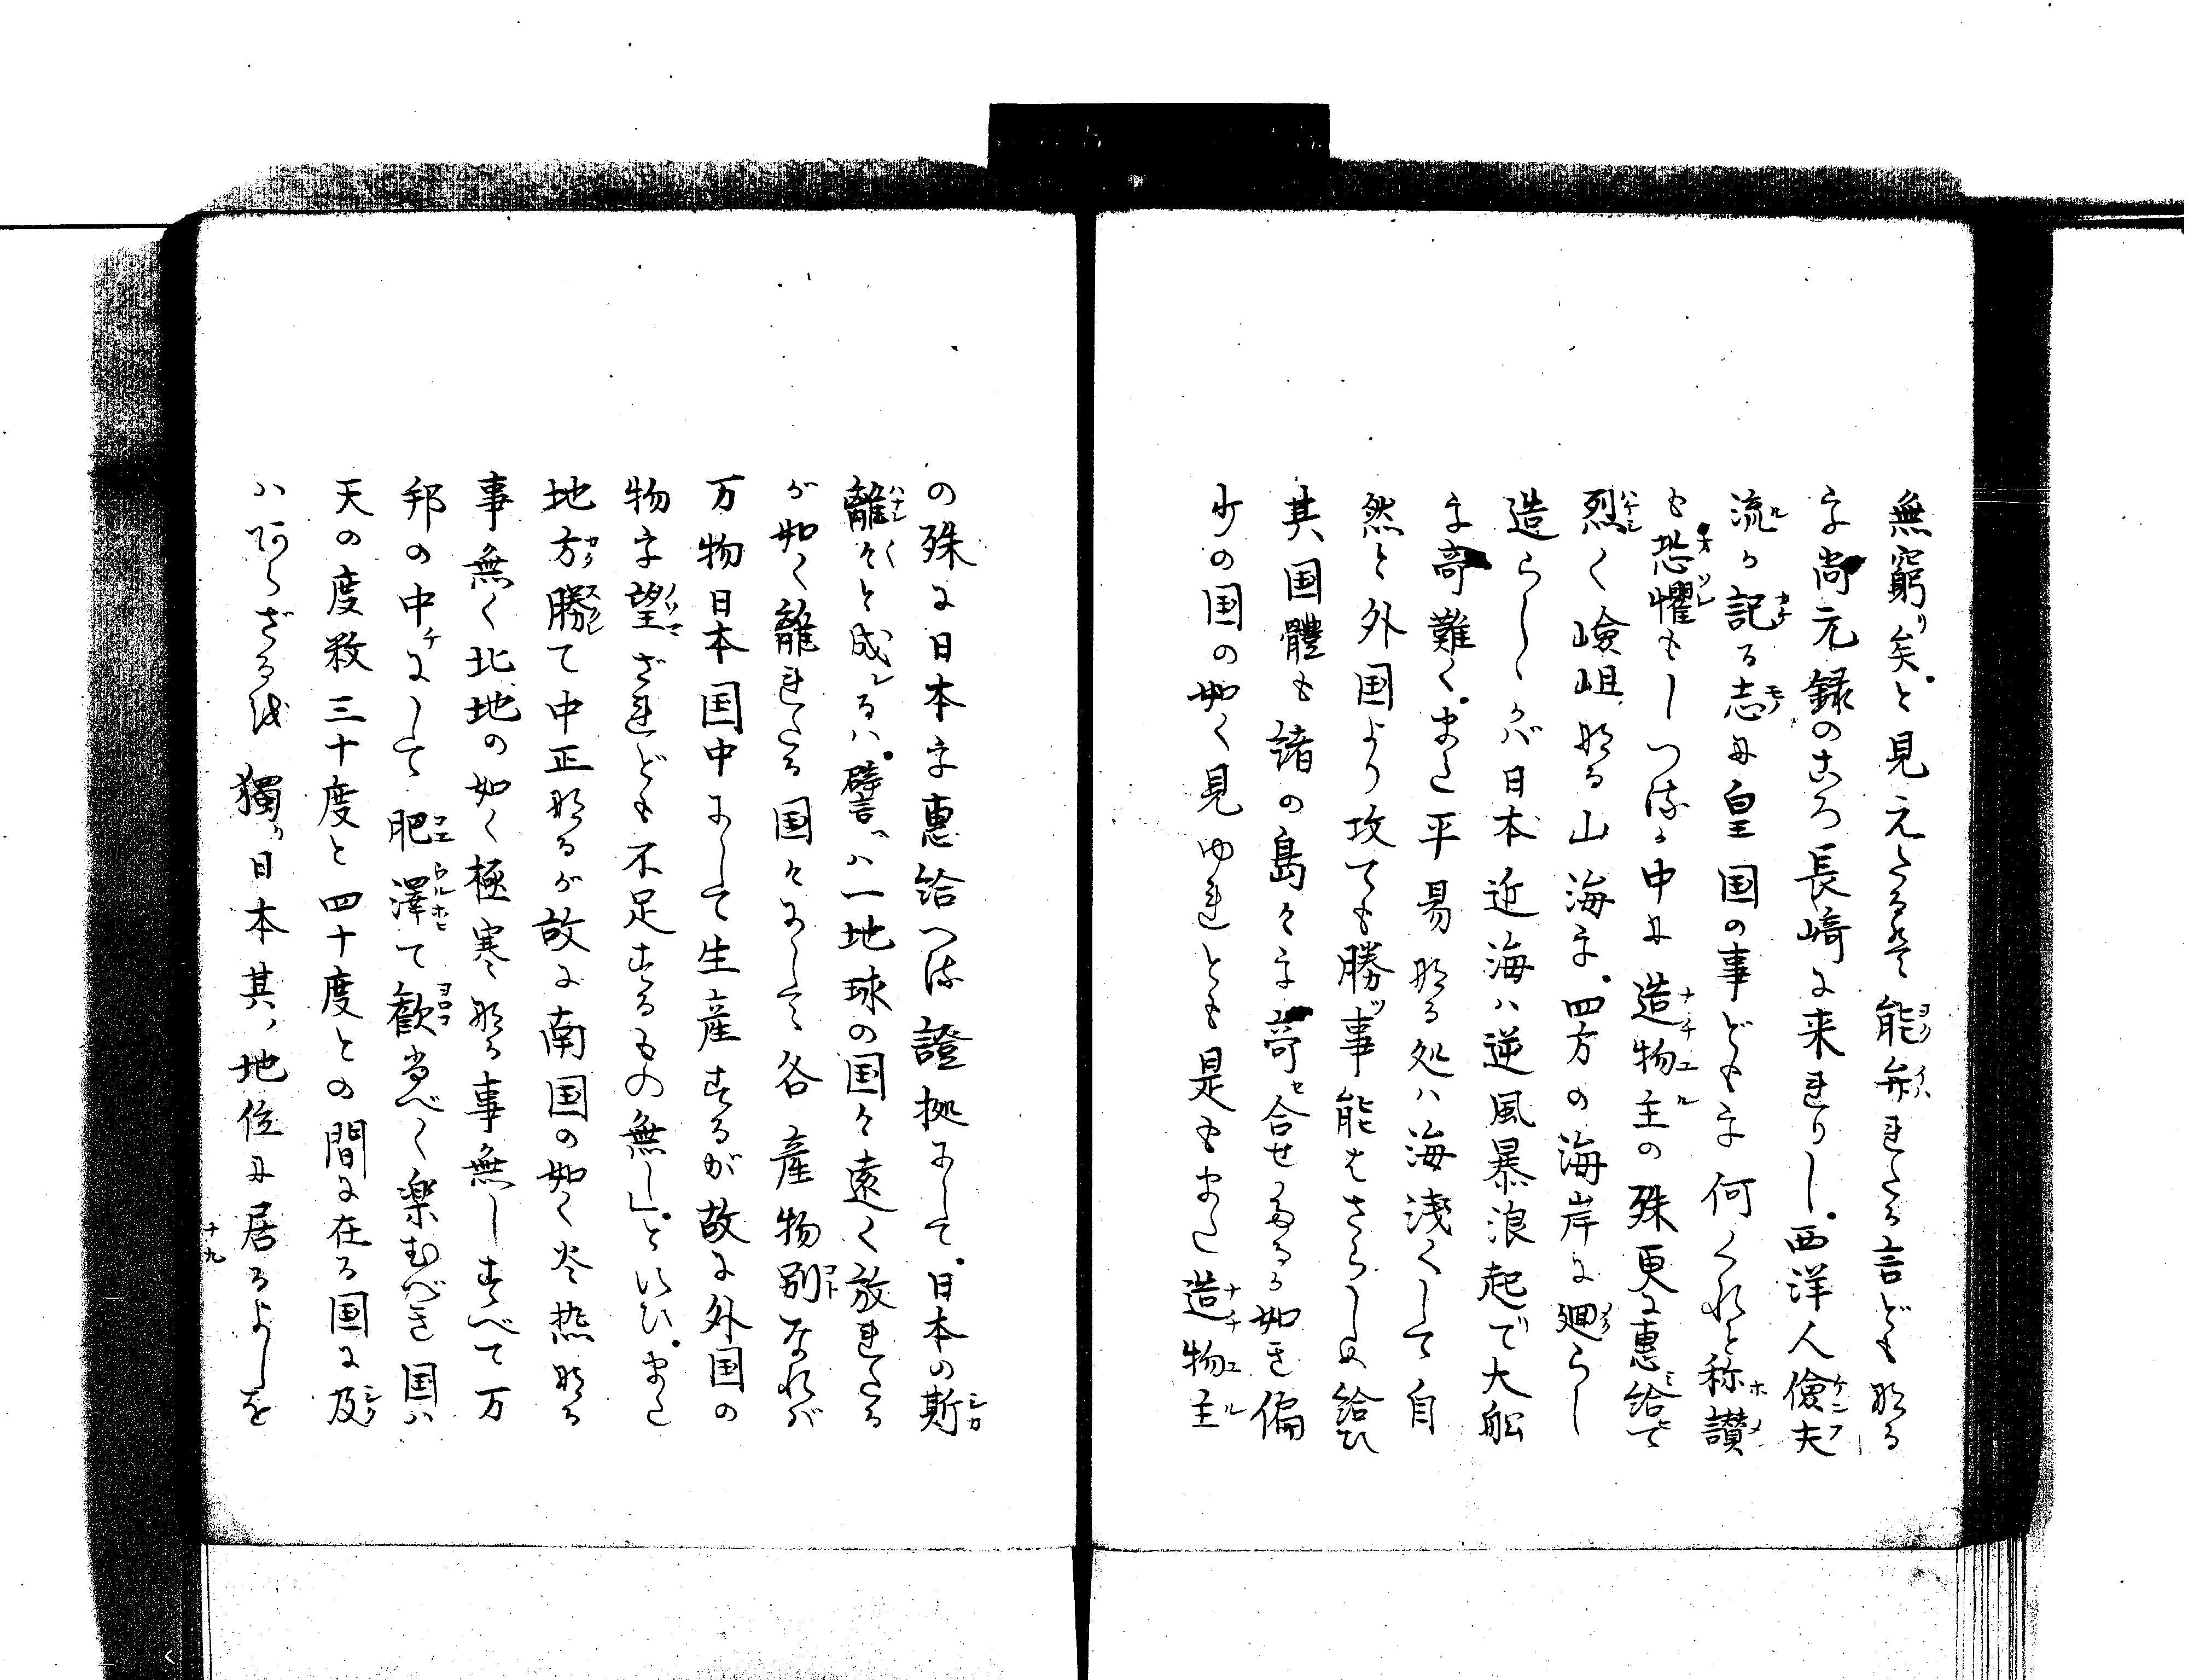 無窮矣。と見えたるを能弁れたる言ども也なる
字尚元録のころ長崎に来れりし。西洋人儉夫
流が記る志に皇国の事ども字何くれと称讃
も恐懼もしつる中に造物主の殊更に惠給て
烈く嶮岨なる山海字。四方の海岸に廻らし
造らしゝかバ日本近海ハ逆風暴浪起て大舩
字寄難く。また平易なる処ハ海淺くして自
然と外国より攻ても勝事能はさらしめ給ひ
其国體も諸の島々字寄合せたるか如き偏
少の国の如く見ゆれとも是もまた造物主
の殊に日本字惠給へる證拠にして。日本の斯
離々と成るハ。譬ハ一地球の国々遠く放れたる
が如く離れたる国々にして各産物別なれバ
万物日本国中にして生産するが故に外国の
物字望ざれども不足するもの無し」といひ。また
地方勝て中正なるが故に南国の如く炎熱なる
事無く北地の如く極寒なる事無しすべて万
邦の中にして肥澤て歓ぶべく楽むべき国ハ
天の度数三十度と四十度との間に在る国に及
ハあらざるを獨日本其地位に居るよしを
十九